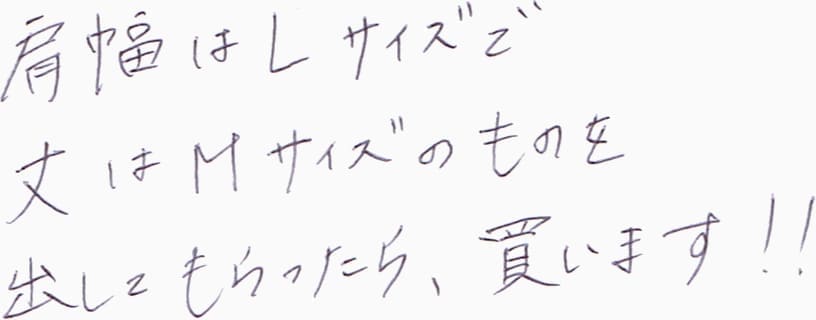 肩幅はLサイズで
丈はMサイズのものを
出してもらったら、買います!!